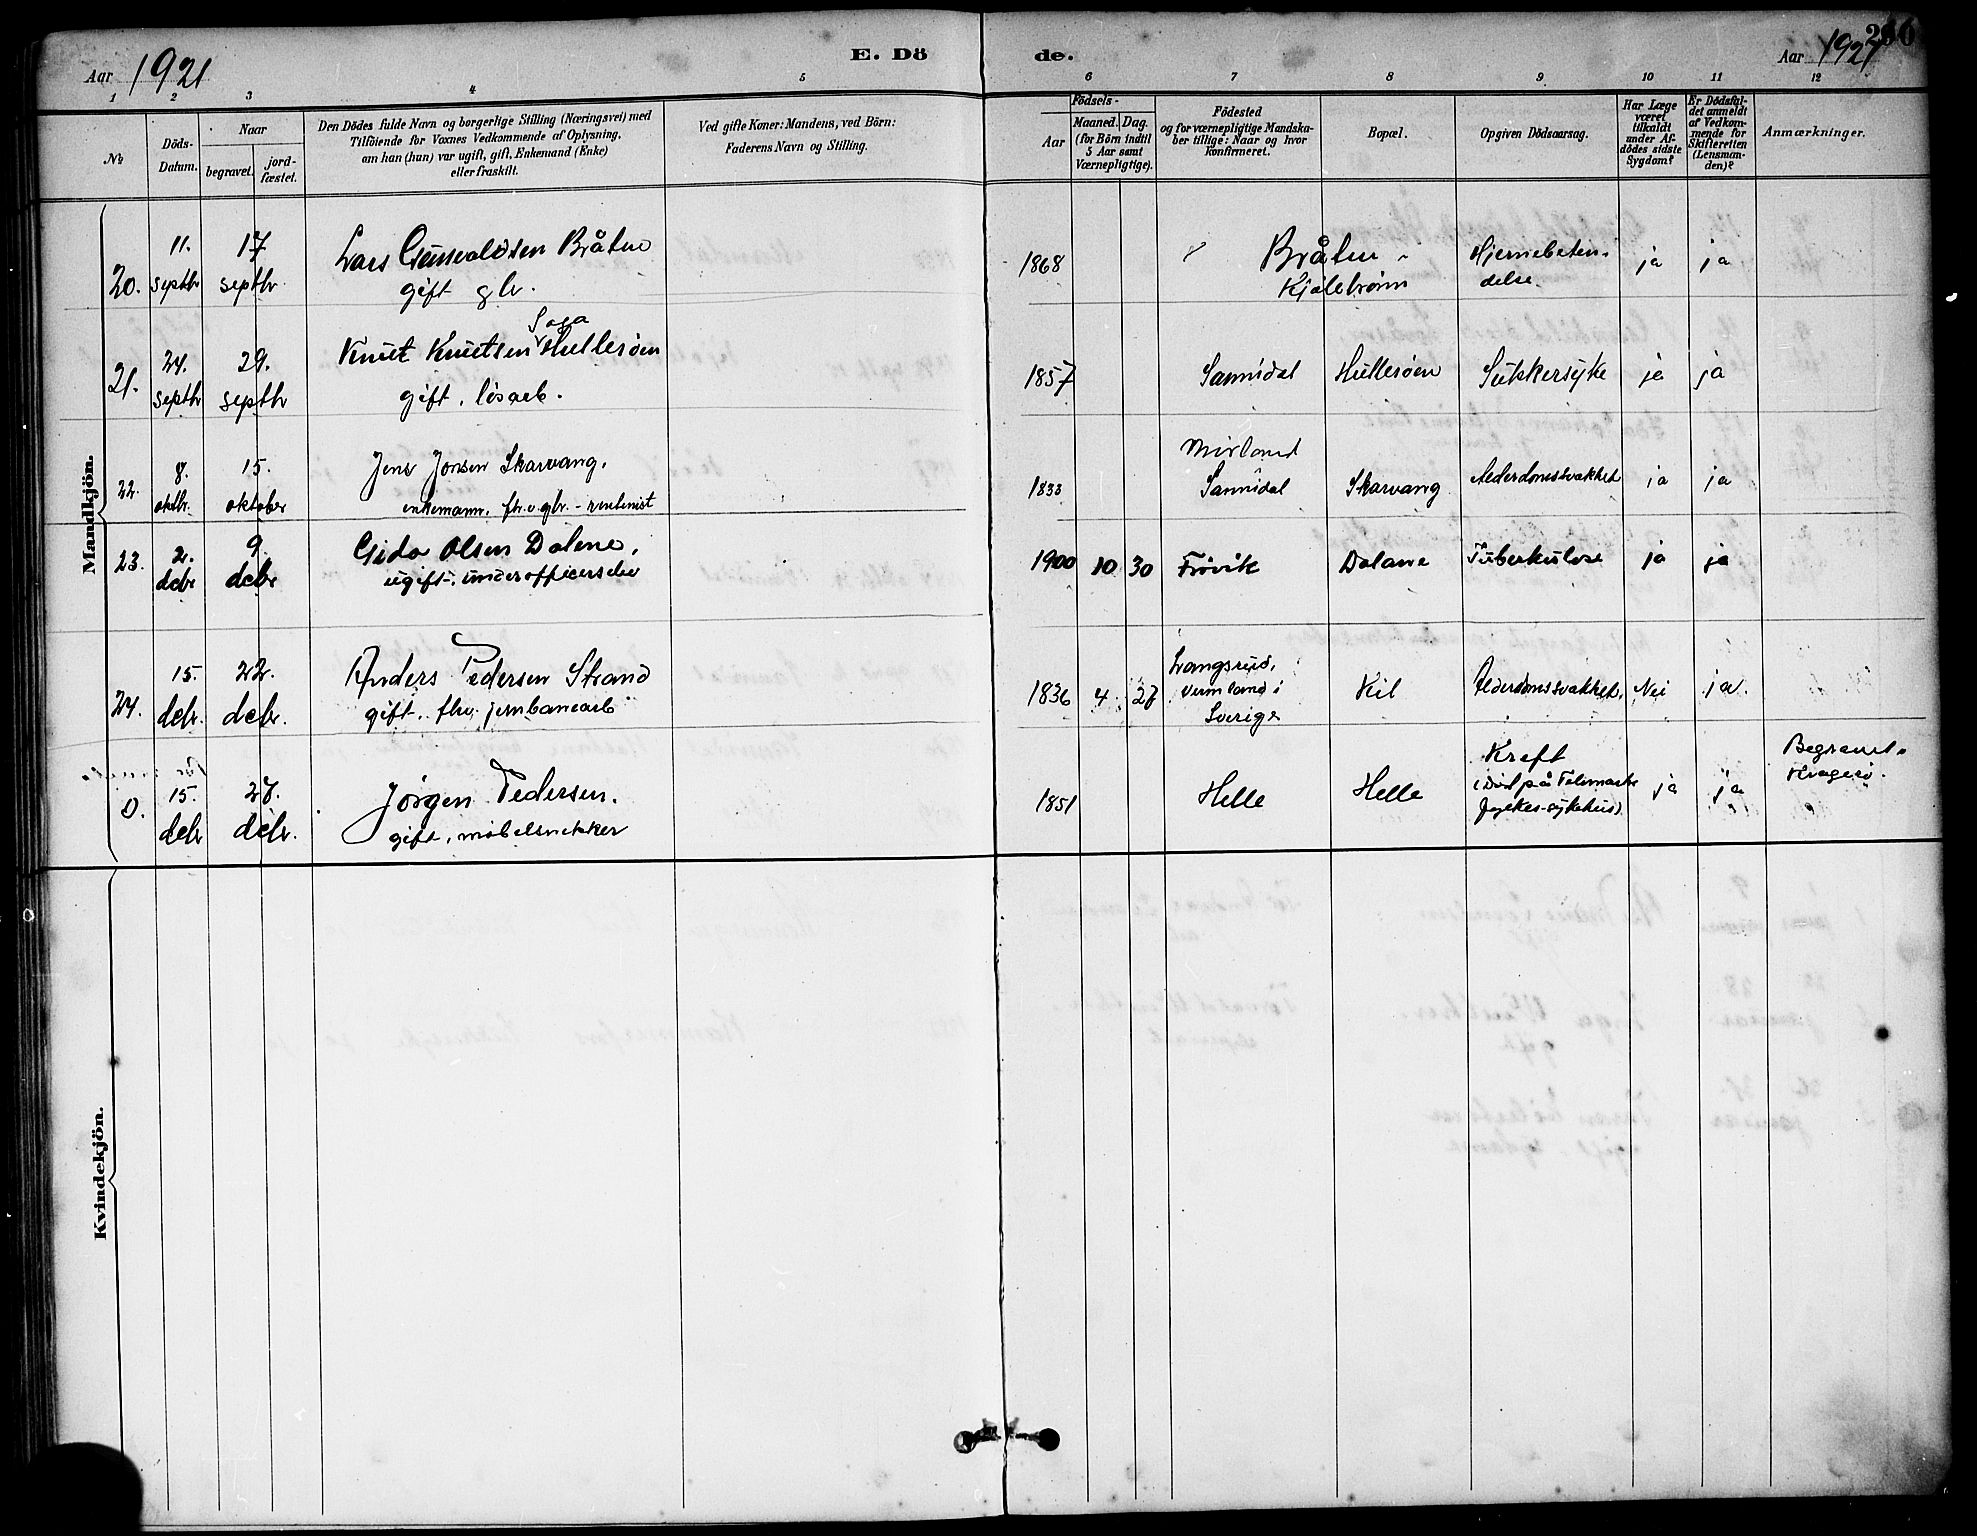 Aar 1921
E. Döde.
Aar 1921
1 2 3 4 5 6 7 8 9 10 11 12
No
Döds-Datum.
Naar
begravet.
jord-fæstet.
Den Dödes fulde Navn og borgerlige Stilling (Næringsvei) med
Tilföiende for Voxnes Vedkommende af Oplysning,
om han (hun) var ugift, gift, Enkemand (Enke)
eller fraskilt.
Ved gifte Koner: Mandens, ved Börn:
Faderens Navn og Stilling.
Födsels-
Aar
Maaned. Dag.
(for Börn indtil
5 Aar samt
Værnepligtige).
Födested
og for værnepligtige Mandska-
ber tillige: Naar og hvor
konfirmeret.
Bopæl.
Opgiven Dödsaarsag.
Har Læge
været
tilkaldt
under Af-
dödes sidste
Sygdom?
Er Dödsfal-
det anmeldt
af Vedkom-
mende for
Skifteretten
(Lensman-
den)?
Anmærkninger.
Mandkjön.
20. 11. septbr 17 septbr Lars Gunvaldsen Bråten 1868 Bråten - Kjølebrønn Hjernebeten- delse. ja ja
gift gbr.
21. 24. septbr 29. septbr Knut Knutsen Saga Hullesøen 1857 Sannidal Hullesøen Sukkersyke ja ja
gift, løsarb.
22. 8. oktbr. 15. oktober Jens Jonsen Skarvang, 1833 Sannidal Skarvang Alderdomssvakhet ja ja
enkemann, fhv. gbr. - rentenist
23. 2. debr 9. debr Olsen Dalene, 1900 10 30 Frøvik Dalane Tuberkulose ja ja
ugift, underofficerselev
24. 15. debr. 22. debr. Anders Pedersen Strand 1836 4 27 Vermland i Sverige Kil Alderdomssvakhet, Nei ja.
gift, fhv. jernbanearb
0. 15. debr 27. debr. Jörgen Pedersen. 1851 Helle Helle Kreft (Død på Telemarks fylkes-sykehus) ja ja Begravet Kragerø.
gift, møbelsnekker
Kvindekjön.